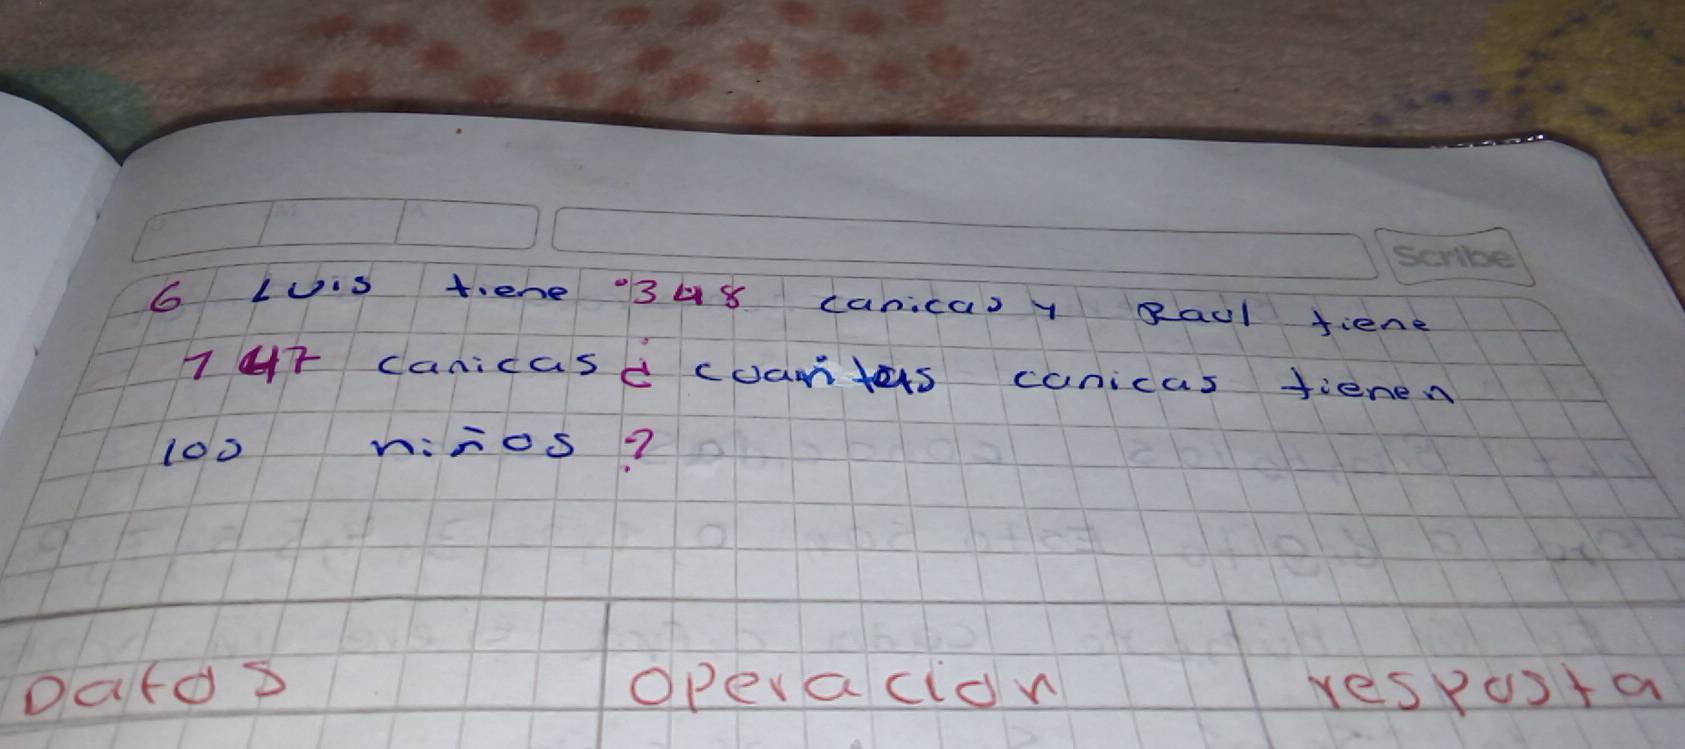 Scribe
6 Luis tiene 348 canicas y Raul tiene
747 canicas ¿ cuantas canicas tienen
los niños ?
Datos operacion resposta